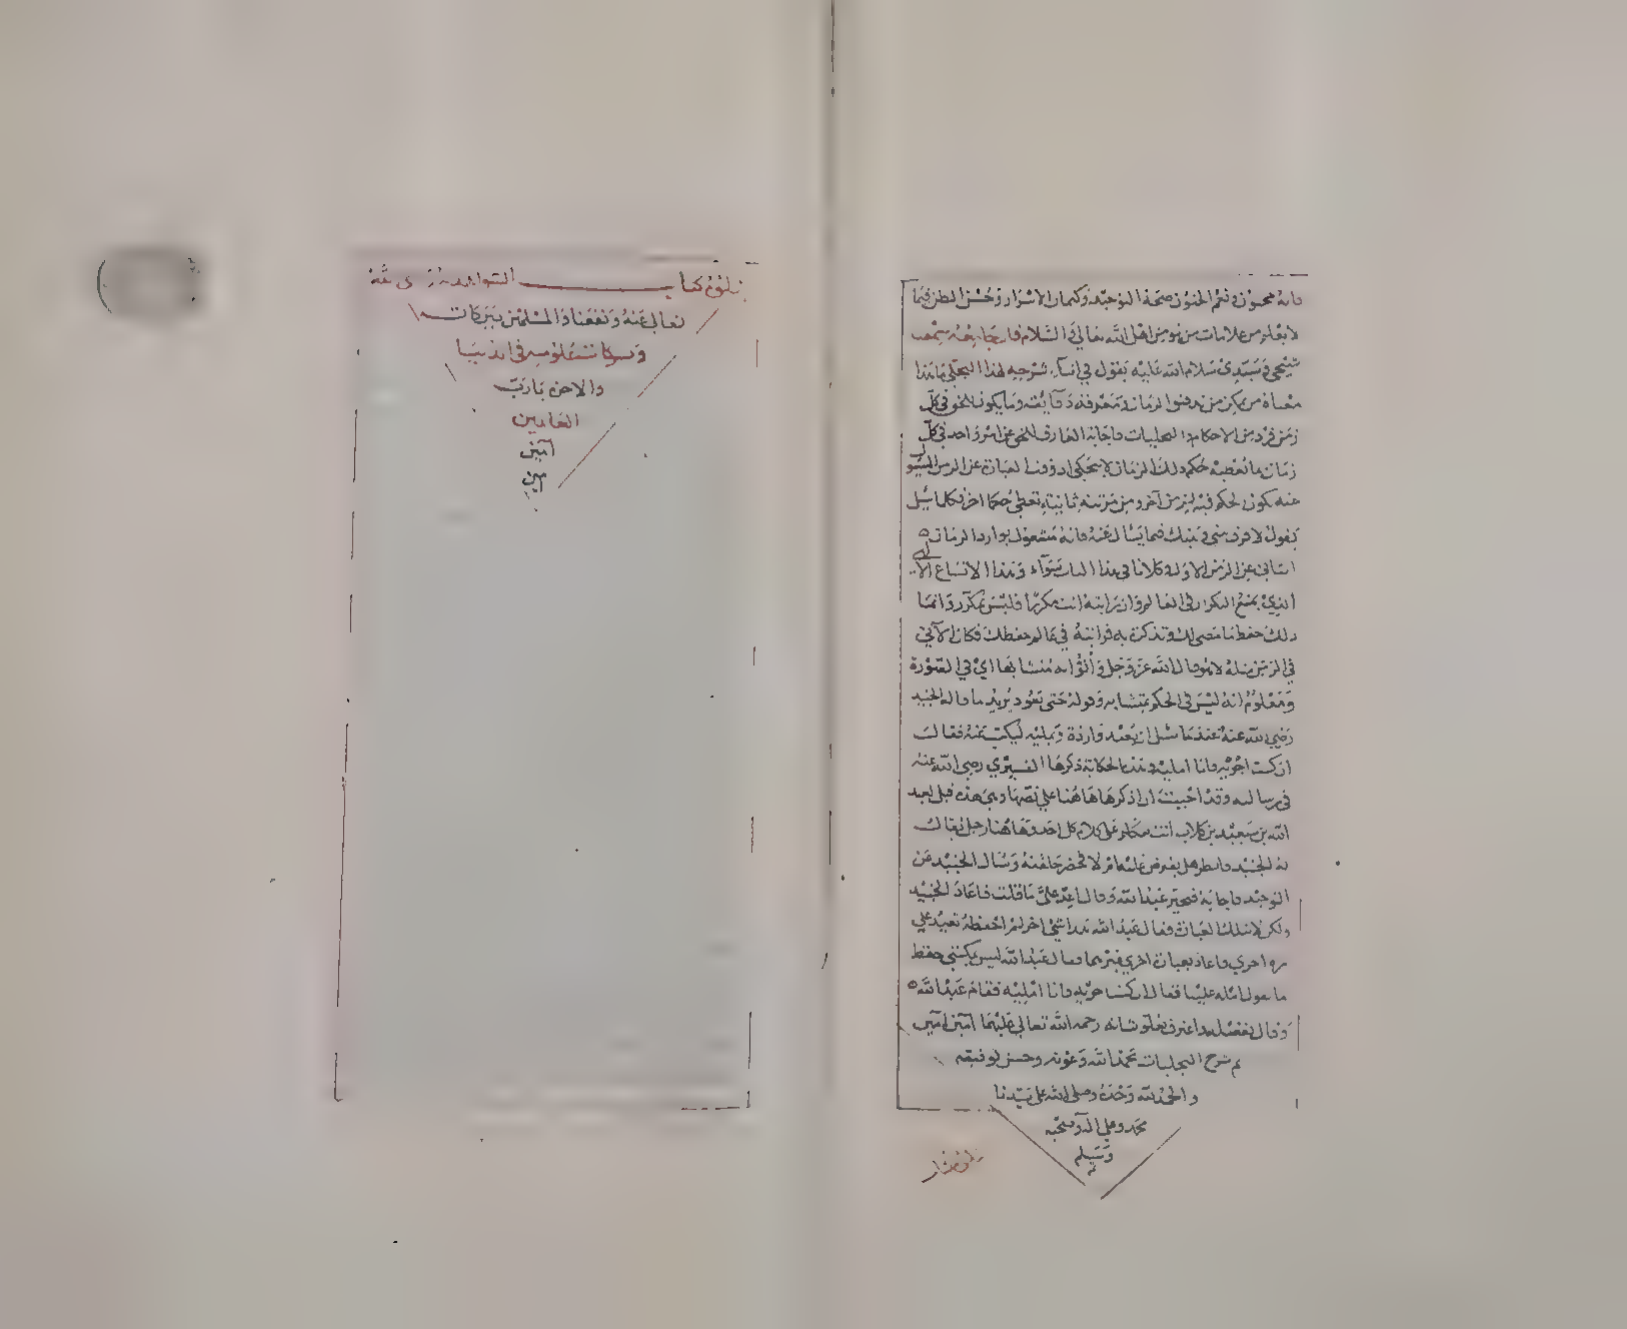 فانه محجون ونتم الحنون صحة التوحيد وكتمان الاسرار وحسن الظن فيما
لا يعلم من علامات من يؤمن اهل الله تعالى والسلام قال جامعه سمعت
شيخي وسيدي سلام الله عليه يقول في اثناء شرحه لهذا التجلي ما هذا
معناه من يمكن من الزمان ومعرفة دقايقه وما يكون للحق في كل
زمن فرد من الاحكام والتجليات فاجابة العارف للحق عن امر واحد في كل
زمان ما تعطيه حكم ذلك الزمان العبارة عن الزمن
عنه يكون الحكم فيه لزمن آخر ومن مرتبة ثانية تعطي حكما اخر فكلما سئل
يقول لا فرق بيني وبينك فيما يسال عنه فانه مشغول بوارد الزمان
الثاني عن الزمن الاول وكلامنا في هذا الباب سواء وهذا الاتساع
الذي يمنع التكرار في العالم وان رايته انت مكررا فليس بمكرر وانما
ذلك حفظنا مضى لك وتذكرت به فرايته في عالم حفظك فكان الآتي
في الزمن مثله لا هو قال الله عز وجل وأتوا به متشابها اي في الصورة
ومعلوم انه ليس في الحكم بمتشابه وقوله حتى يعود يريد ما قاله الجنيد
رضي الله عنه عندما سئل ان يعيد وارده ويمليه ليكتب عنه فقال
ان كنت اجريه فانا امليه وهذه الحكاية ذكرها القشيري رضي الله عنه
في رسالته وقد احببت ان اذكرها هاهنا على نصها وهي هذه قيل لعبد
الله بن سعيد بن كلاب انت تتكلم على كلام كل احد وهاهنا رجل يقال
له الجنيد فانظر هل يعترض عليه ام لا فحضر حلقته وسال الجنيد عن
التوحيد فاجابه فتحير عبد الله وقال اعد علي ما قلت فاعاد الجنيد
ولكن لا بتلك العبارة فقال عبد الله هذا شي اخر لم احفظه تعيده علي
مرة اخرى فاعاد بعبارة اخرى فقال عبد الله ليس يمكنني حفظ
ما تقول امله علينا فقال ان كنت اجريه فانا امليه فقام عبد الله
وقال بفضله واعترف بعلو شانه رحمة الله تعالى عليهما آمين آمين
تم شرح التجليات بحمد الله وعونه وحسن توفيقه
والحمد لله وحده وصلى الله على سيدنا
محمد وعلى اله وصحبه
وسلم
يتلوه كتاب الشواهد له رضي الله
تعالى عنه ونفعنا والمسلمين ببركاته
وبركات علومه في الدنيا
والاخرة يا رب
العالمين
آمين
آمين